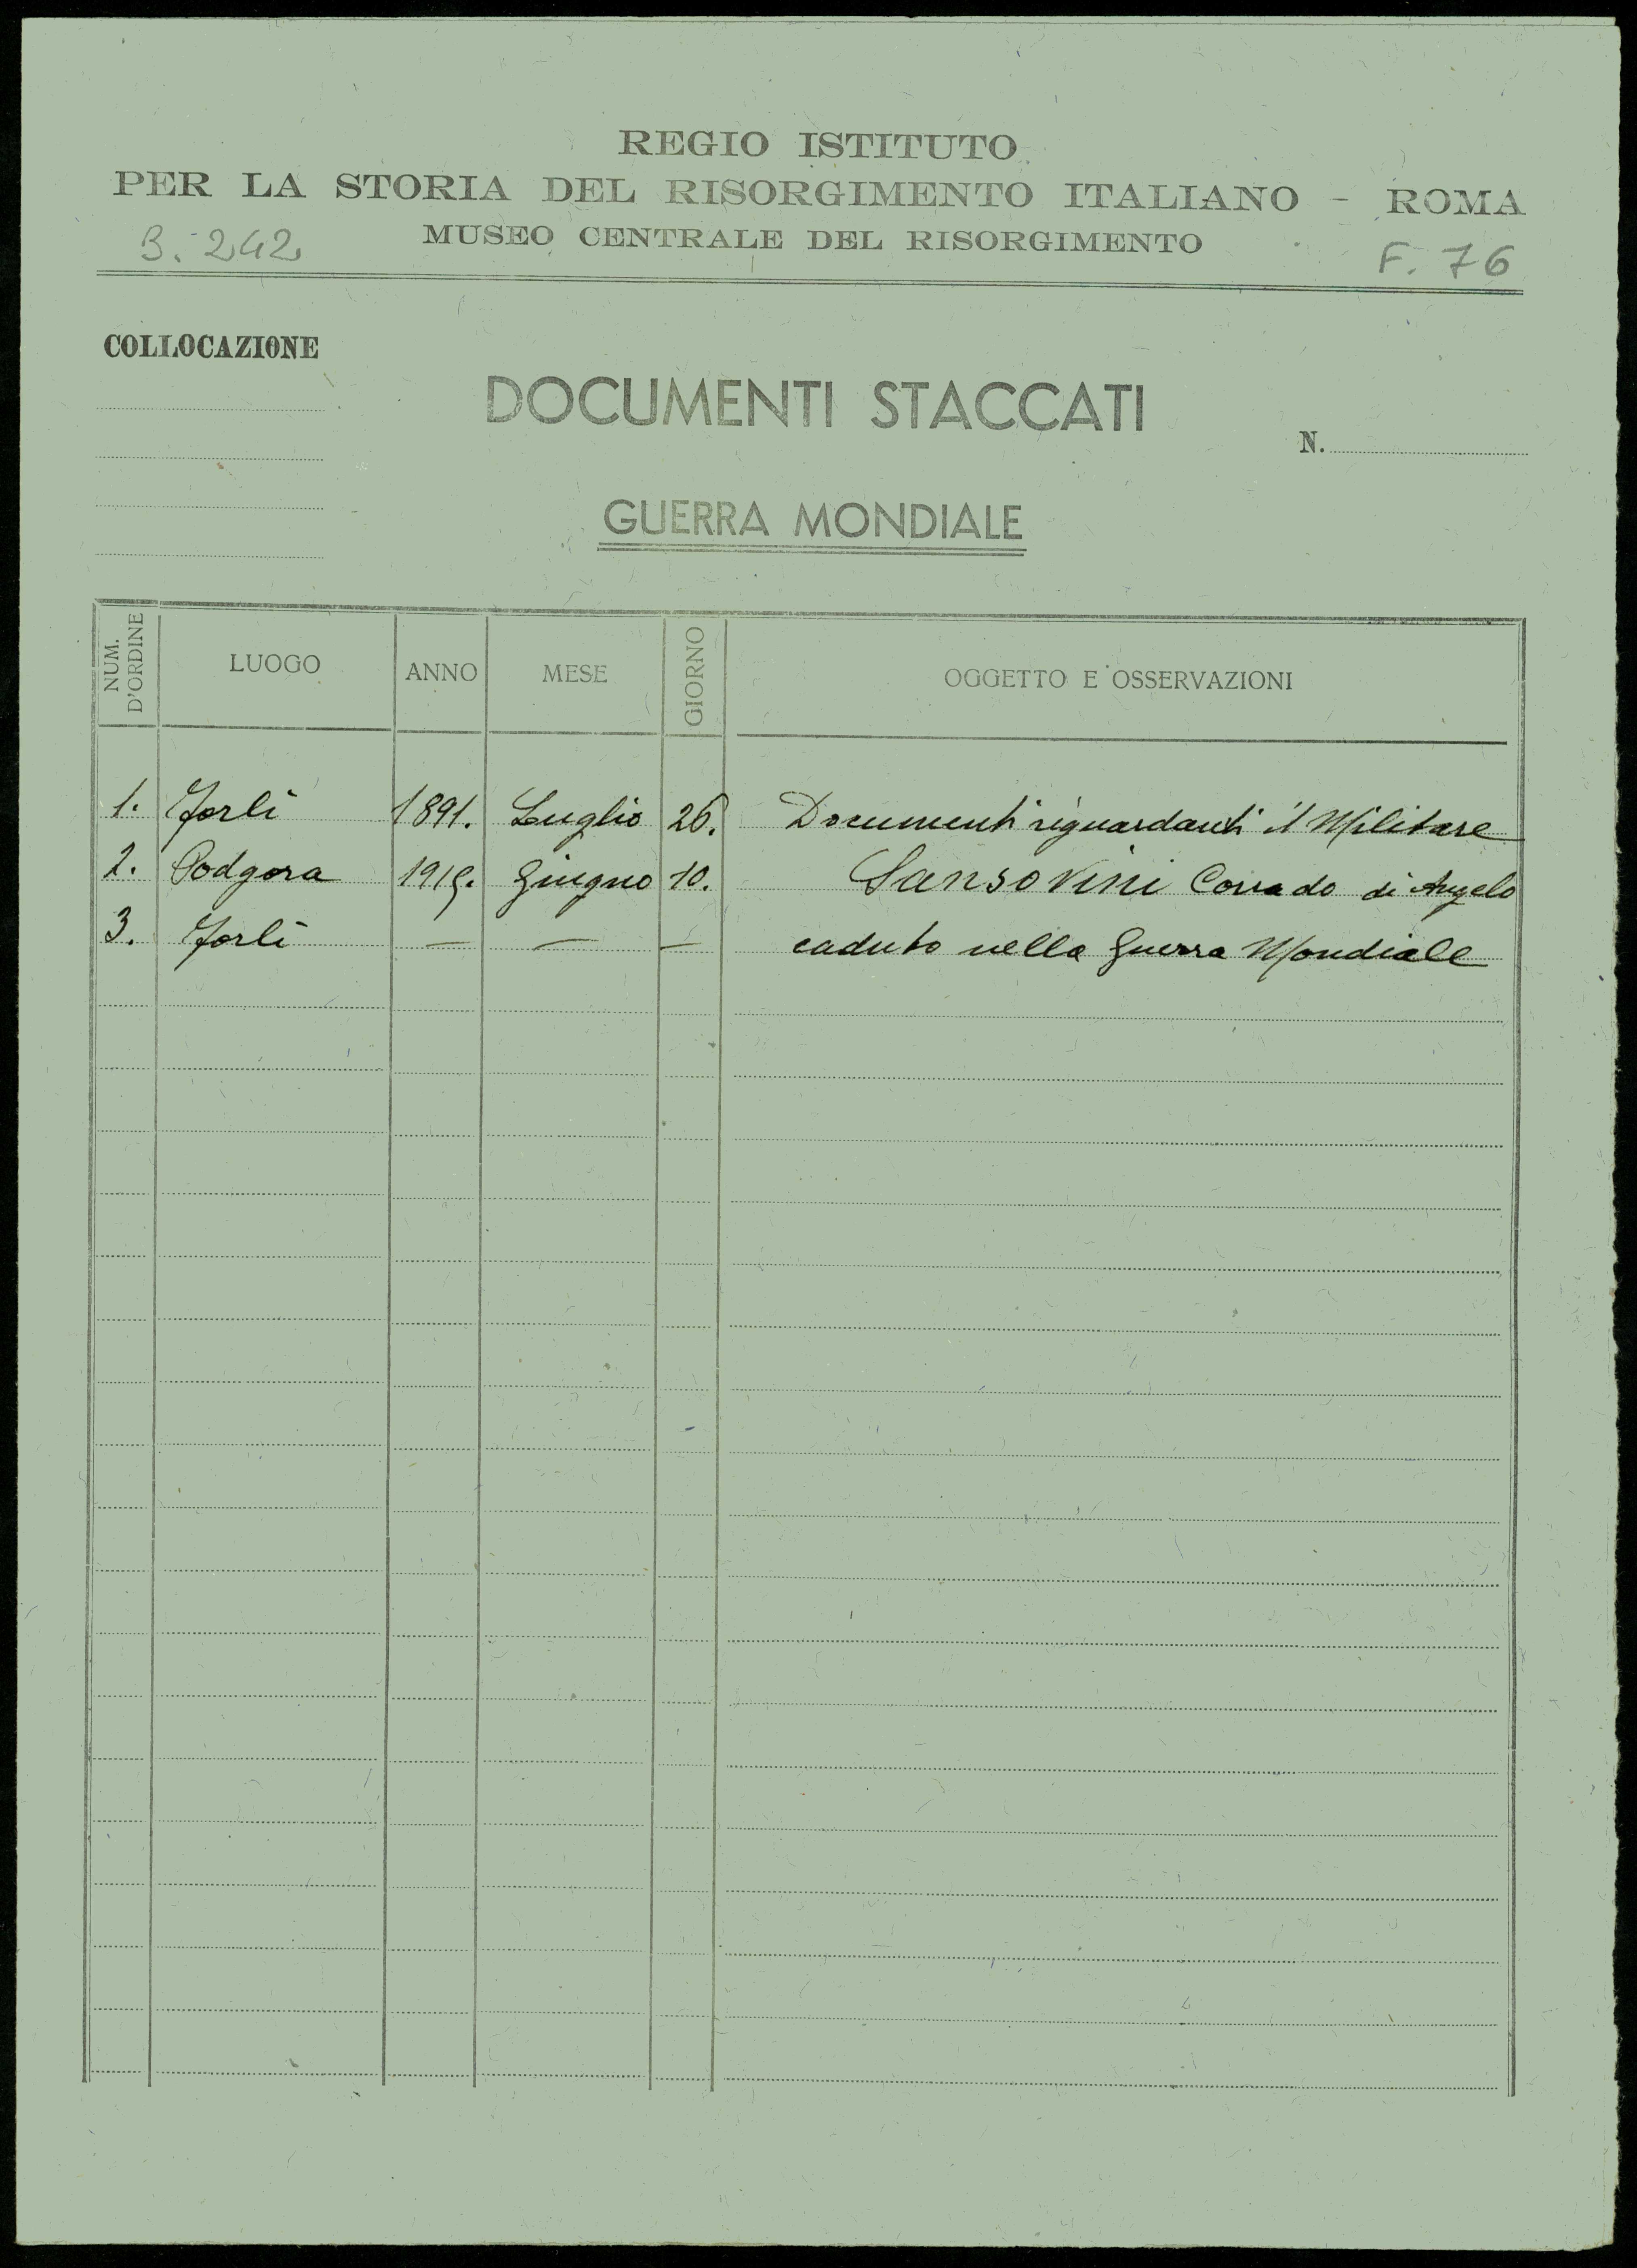 REGIO ISTITUTO
PER LA STORIA DEL RISORGIMENTO ITALIANO - ROMA
B. 242 MUSEO CENTRALE DEL RISORGIMENTO F. 76
COLLOCAZIONE
DOCUMENTI STACCATI
N.
GUERRA MONDIALE
NUM. D'ORDINE LUOGO ANNO MESE GIORNO OGGETTO E OSSERVAZIONI
1. Forlì 1891. Luglio 26. Documenti riguardanti il Militare
2. Podgora 1915. Giugno 10. Sansovini Corrado di Angelo
3. Forlì — — — caduto nella Guerra Mondiale